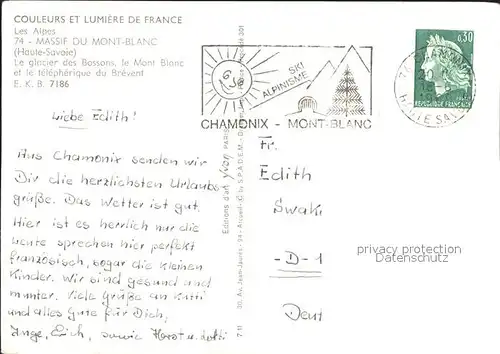 COULEURS ET LUMIÈRE DE FRANCE
Les Alpes
74 - MASSIF DU MONT-BLANC
(Haute-Savoie)
Le glacier des Bossons, le Mont Blanc
et le téléphérique du Brévent
E. K. B. 7186
SKI
ALPINISME
CHAMONIX - MONT-BLANC
0,30
REPUBLIQUE FRANÇAISE
Liebe Edith!
Aus Chamonix senden wir
Dir die herzlichsten Urlaubs-
grüße. Das Wetter ist gut.
Hier ist es herrlich nur die
Leute sprechen hier perfekt
französisch, sogar die kleinen
Kinder. Wir sind gesund und
munter. Viele Grüße an Kutti
und alles Gute für Dich,
Inge, Erich, sowie Horst u. Lotti
Editions d'art Yvon PARIS
Fr.
Edith
Swaki
-D-1
Deut
privacy protection
Datenschutz